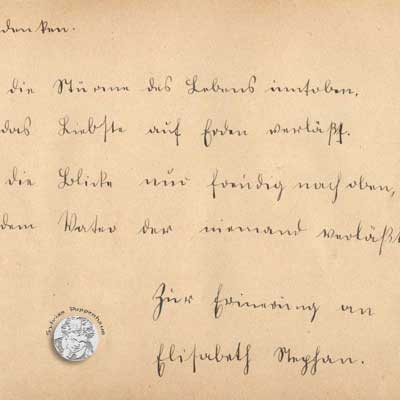 denken.
die Stürme des Lebens umtoben,
das Liebste auf Erden verläßt.
die Blicke nur freudig nach oben,
dem Vater der niemand verläßt
Zur Erinerung an
Elisabeth Stephan.
Sylvias Puppenhaus